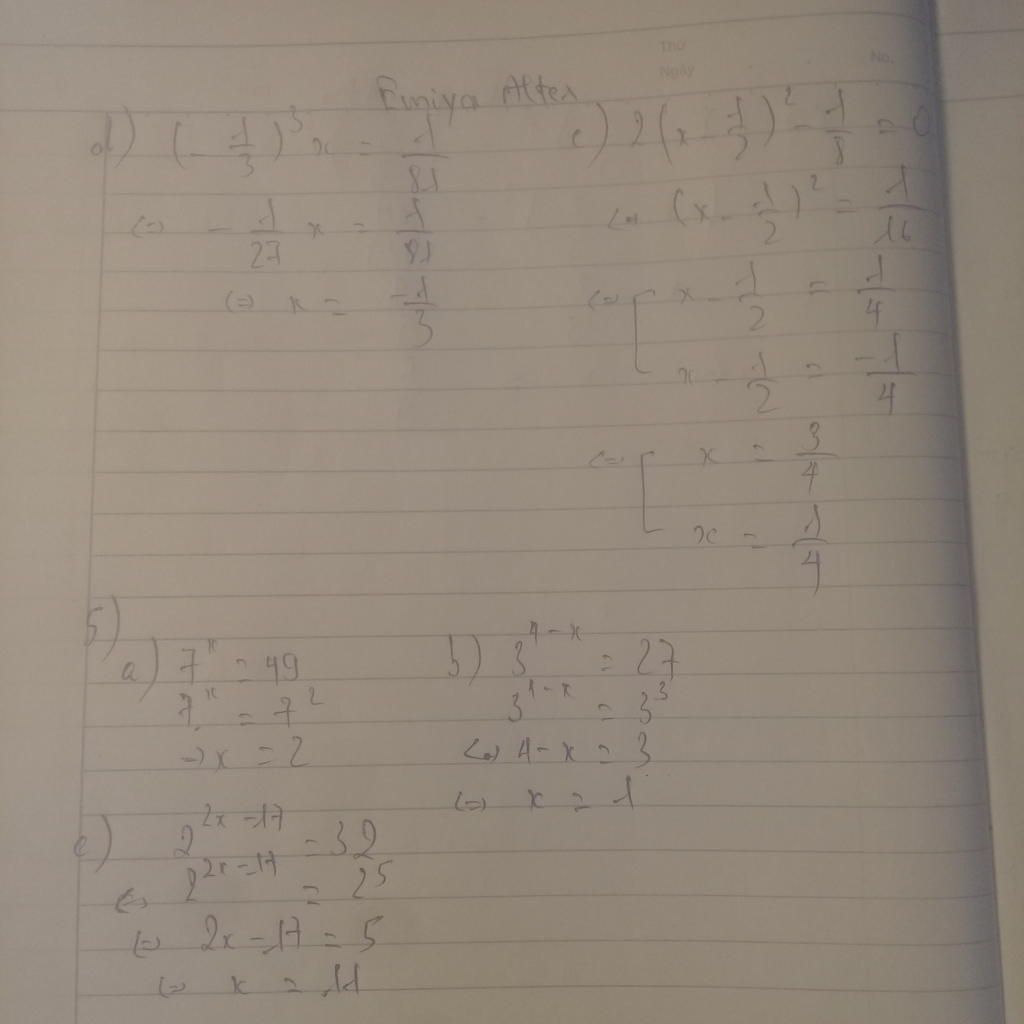 Thứ
Ngày
No.
Emiya Alter
d) (-1/3)³ x = 1/81
⇔ -1/27 x = 1/81
⇔ x = -1/3
e) 2(x - 1/2)² - 1/8 = 0
⇔ (x - 1/2)² = 1/16
⇔ [ x - 1/2 = 1/4
x - 1/2 = -1/4
⇔ [ x = 3/4
x = 1/4
5)
a) 7ˣ = 49
7ˣ = 7²
⇒ x = 2
b) 3⁴⁻ˣ = 27
3⁴⁻ˣ = 3³
⇔ 4 - x = 3
⇔ x = 1
c) 2²ˣ⁻¹⁷ = 32
⇔ 2²ˣ⁻¹⁷ = 2⁵
⇔ 2x - 17 = 5
⇔ x = 11